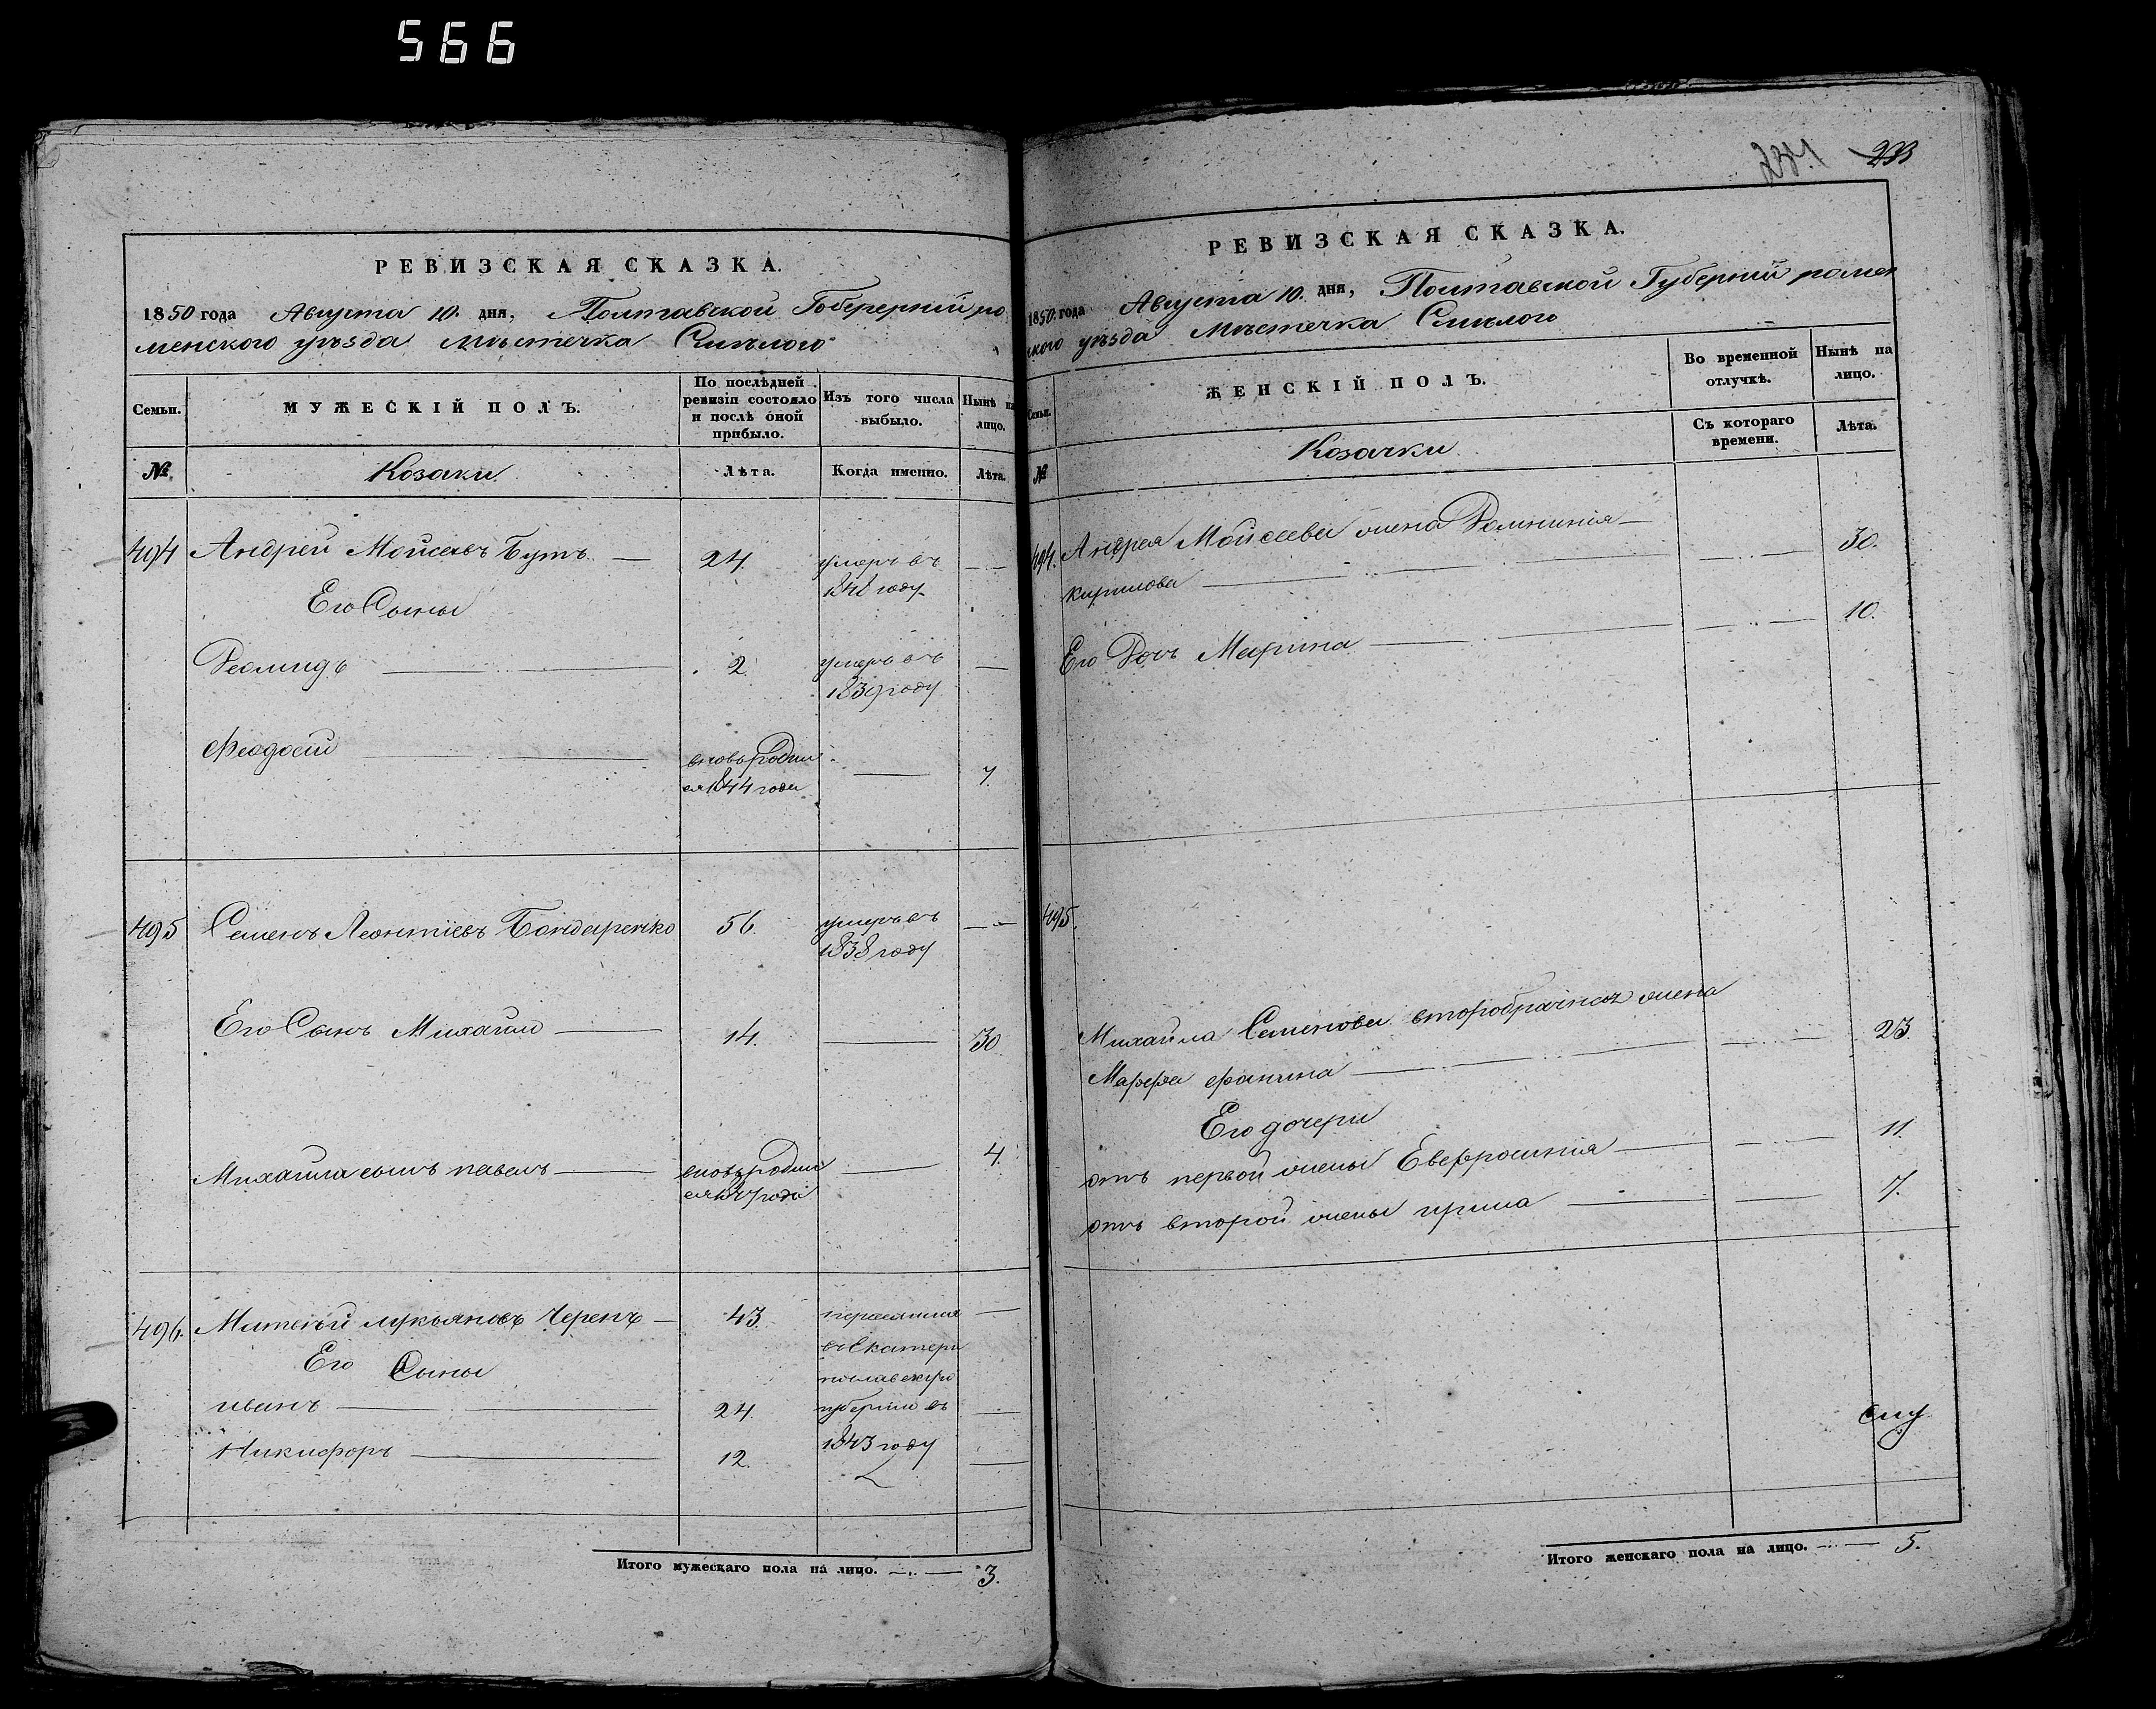 566
233
РЕВИЗСКАЯ СКАЗКА.
1850 года Августа 10. дня, Полтавской Гобгерній ро
менского уѣзда мѣстечка Смѣлого
Семьи.
МУЖЕСКІЙ ПОЛЪ.
По послѣдней ревизіи состояло и послѣ оной прибыло.
Изъ того числа выбыло.
Нынѣ на лицо.
№
Козаки
Лѣта.
Когда именно.
Лѣта.
494 Андрей Мойсеевъ Бутъ — 24. умеръ въ
1848 году
Его Сыны
Леонидъ 2. умеръ въ —
1839 году
Феодосій вновь родил — 7.
ся 1844 года
495 Семенъ Леонтіевъ Бондаренко 56. умеръ въ
1838 году
Его Сынъ Михайло — 14. — 30
Михайла сынъ павелъ — вновь родил — 4.
ся 1847 года
496. Матвѣй лукьяновъ Черепъ — 43. переселился —
Его Сыны
въ Екатери
нославскую
иванъ — 24. губернію въ —
Никифоръ — 12. 1843 году —
Итого мужескаго пола на лицо. — 3.
РЕВИЗСКАЯ СКАЗКА.
1850 года Августа 10. дня, Полтавской Губерній ромен
ского уѣзда Мѣстечка Смѣлого
Семьи.
ЖЕНСКІЙ ПОЛЪ.
Во временной отлучкѣ.
Нынѣ на лицо.
№
Козачки
Съ котораго времени.
Лѣта.
494. Андрея Мойсеева жена Домникія —
кирилова — 30.
Его Дочь Марина — 10.
495.
Михайла Семенова второбрачная жена
Марфа фомина — 23.
Его дочери
отъ первой жены Евфросинія — 11.
отъ второй жены ирина — 7.
Итого женскаго пола на лицо. — 5.